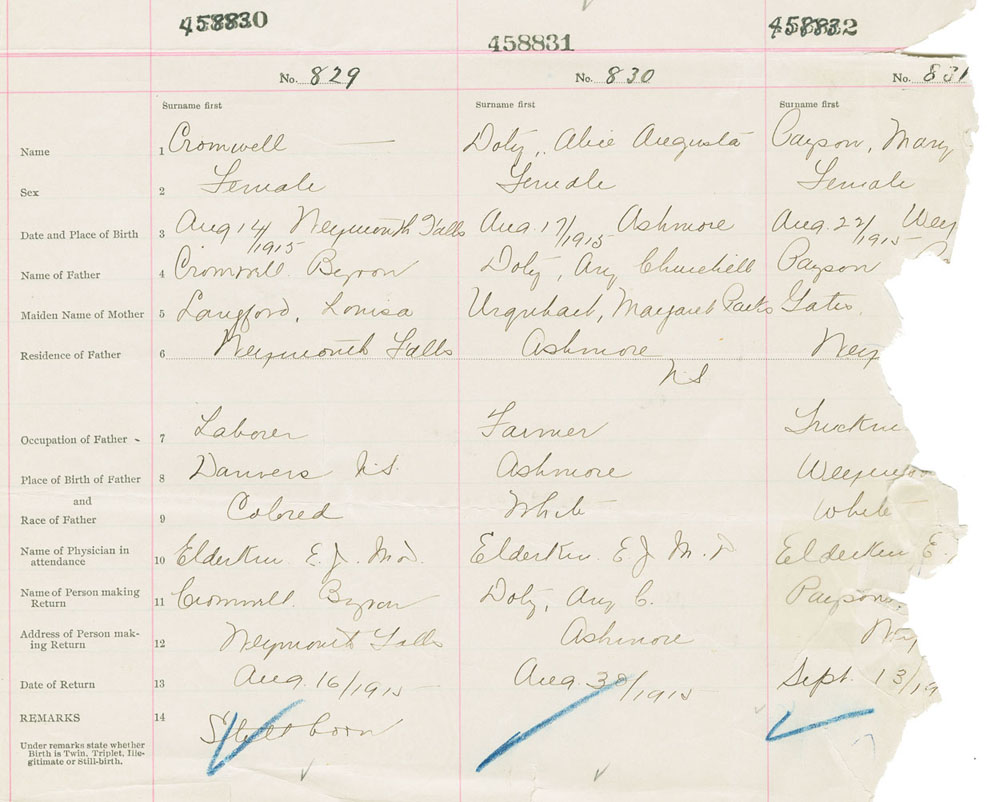 458830 458831 458832
No. 829 No. 830 No. 831
Surname first Surname first Surname first
Name 1 Cromwell — Doty, Alice Augusta Payson, Mary
Sex 2 Female Female Female
Date and Place of Birth 3 Aug 14/1915 Weymouth Falls Aug. 17/1915 Ashmore Aug. 22/1915 Wey
Name of Father 4 Cromwell. Byron Doty, Ary Churchill Payson
Maiden Name of Mother 5 Langford, Louisa Urquhart, Margaret Parks Gates
Residence of Father 6 Weymouth Falls Ashmore N.S. Wey
Occupation of Father 7 Laborer Farmer Truckm
Place of Birth of Father 8 Danvers N.S. Ashmore Weymou
and
Race of Father 9 Colored White White
Name of Physician in attendance 10 Elderkin E. J. M.D. Elderkin. E J M. D Elderkin, E.
Name of Person making Return 11 Cromwell. Byron Doty, Ary C. Payson,
Address of Person making Return 12 Weymouth Falls Ashmore Wey
Date of Return 13 Aug. 16/1915 Aug. 30/1915 Sept. 13/19
REMARKS 14 Still born
Under remarks state whether
Birth is Twin, Triplet, Ille-
gitimate or Still-birth.